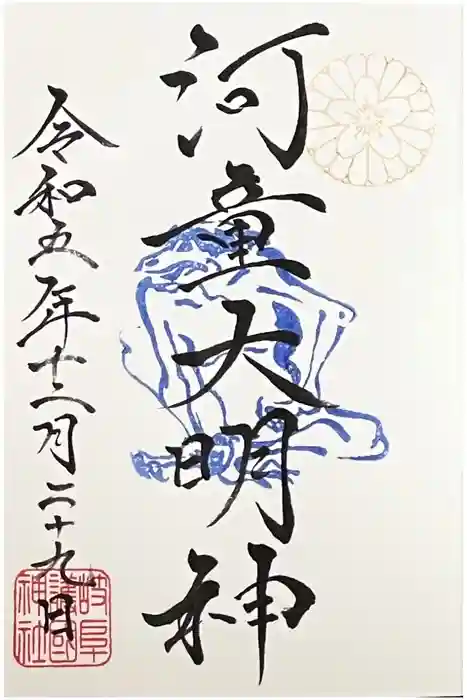 河童大明神
令和五年十二月二十九日
岐阜
護國
神社